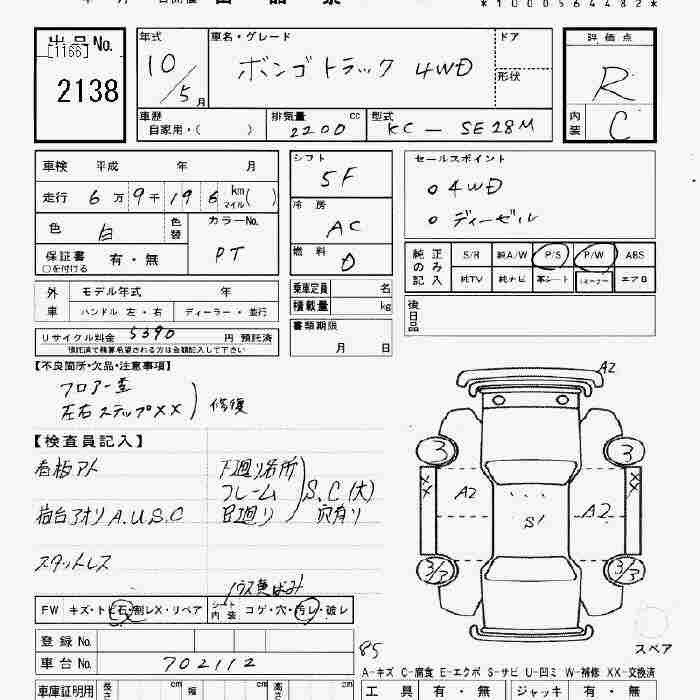 *1000564482*
出品No.
[1166]
2138
年式
10/5月
車名・グレード
ボンゴトラック 4WD
ドア
形状
評価点
R
内装
C
車歴
自家用・( )
排気量 cc
2200
型式
KC - SE28M
車検 平成 年 月
走行 6万9千196 km マイル( )
色 白 色替
カラーNo.
PT
保証書 有・無
○を付ける
シフト
5F
冷房
AC
燃料
D
セールスポイント
○ 4WD
○ ディーゼル
純正のみ記入
S/R 純A/W P/S P/W ABS
純TV 純ナビ 革シート エアB
外車
モデル年式 年
ハンドル 左・右 ディーラー・並行
乗車定員 名
積載量 kg
後日品
リサイクル料金 5390 円 預託済
預託済で精算希望される方は金額記入して下さい
書類期限
月 日
【不良箇所・欠品・注意事項】
フロアー歪
左右ステップXX
修復
【検査員記入】
看板アト
荷台アオリ A.U.S.C
スタットレス
下廻り各所
フレーム
足廻り
S、C(大)
穴有り
A2
3
3
XX
A2
S1
A2
XX
スペア
FW キズ・トビ石・割レX・リペア
シート内装 コゲ・穴・汚レ・破レ
登録No.
車台No. 702112
85
A-キズ C-腐食 E-エクボ S-サビ U-凹ミ W-補修 XX-交換済
車庫証明用 長さ cm 幅 cm 高さ cm
工具 有・無 ジャッキ 有・無